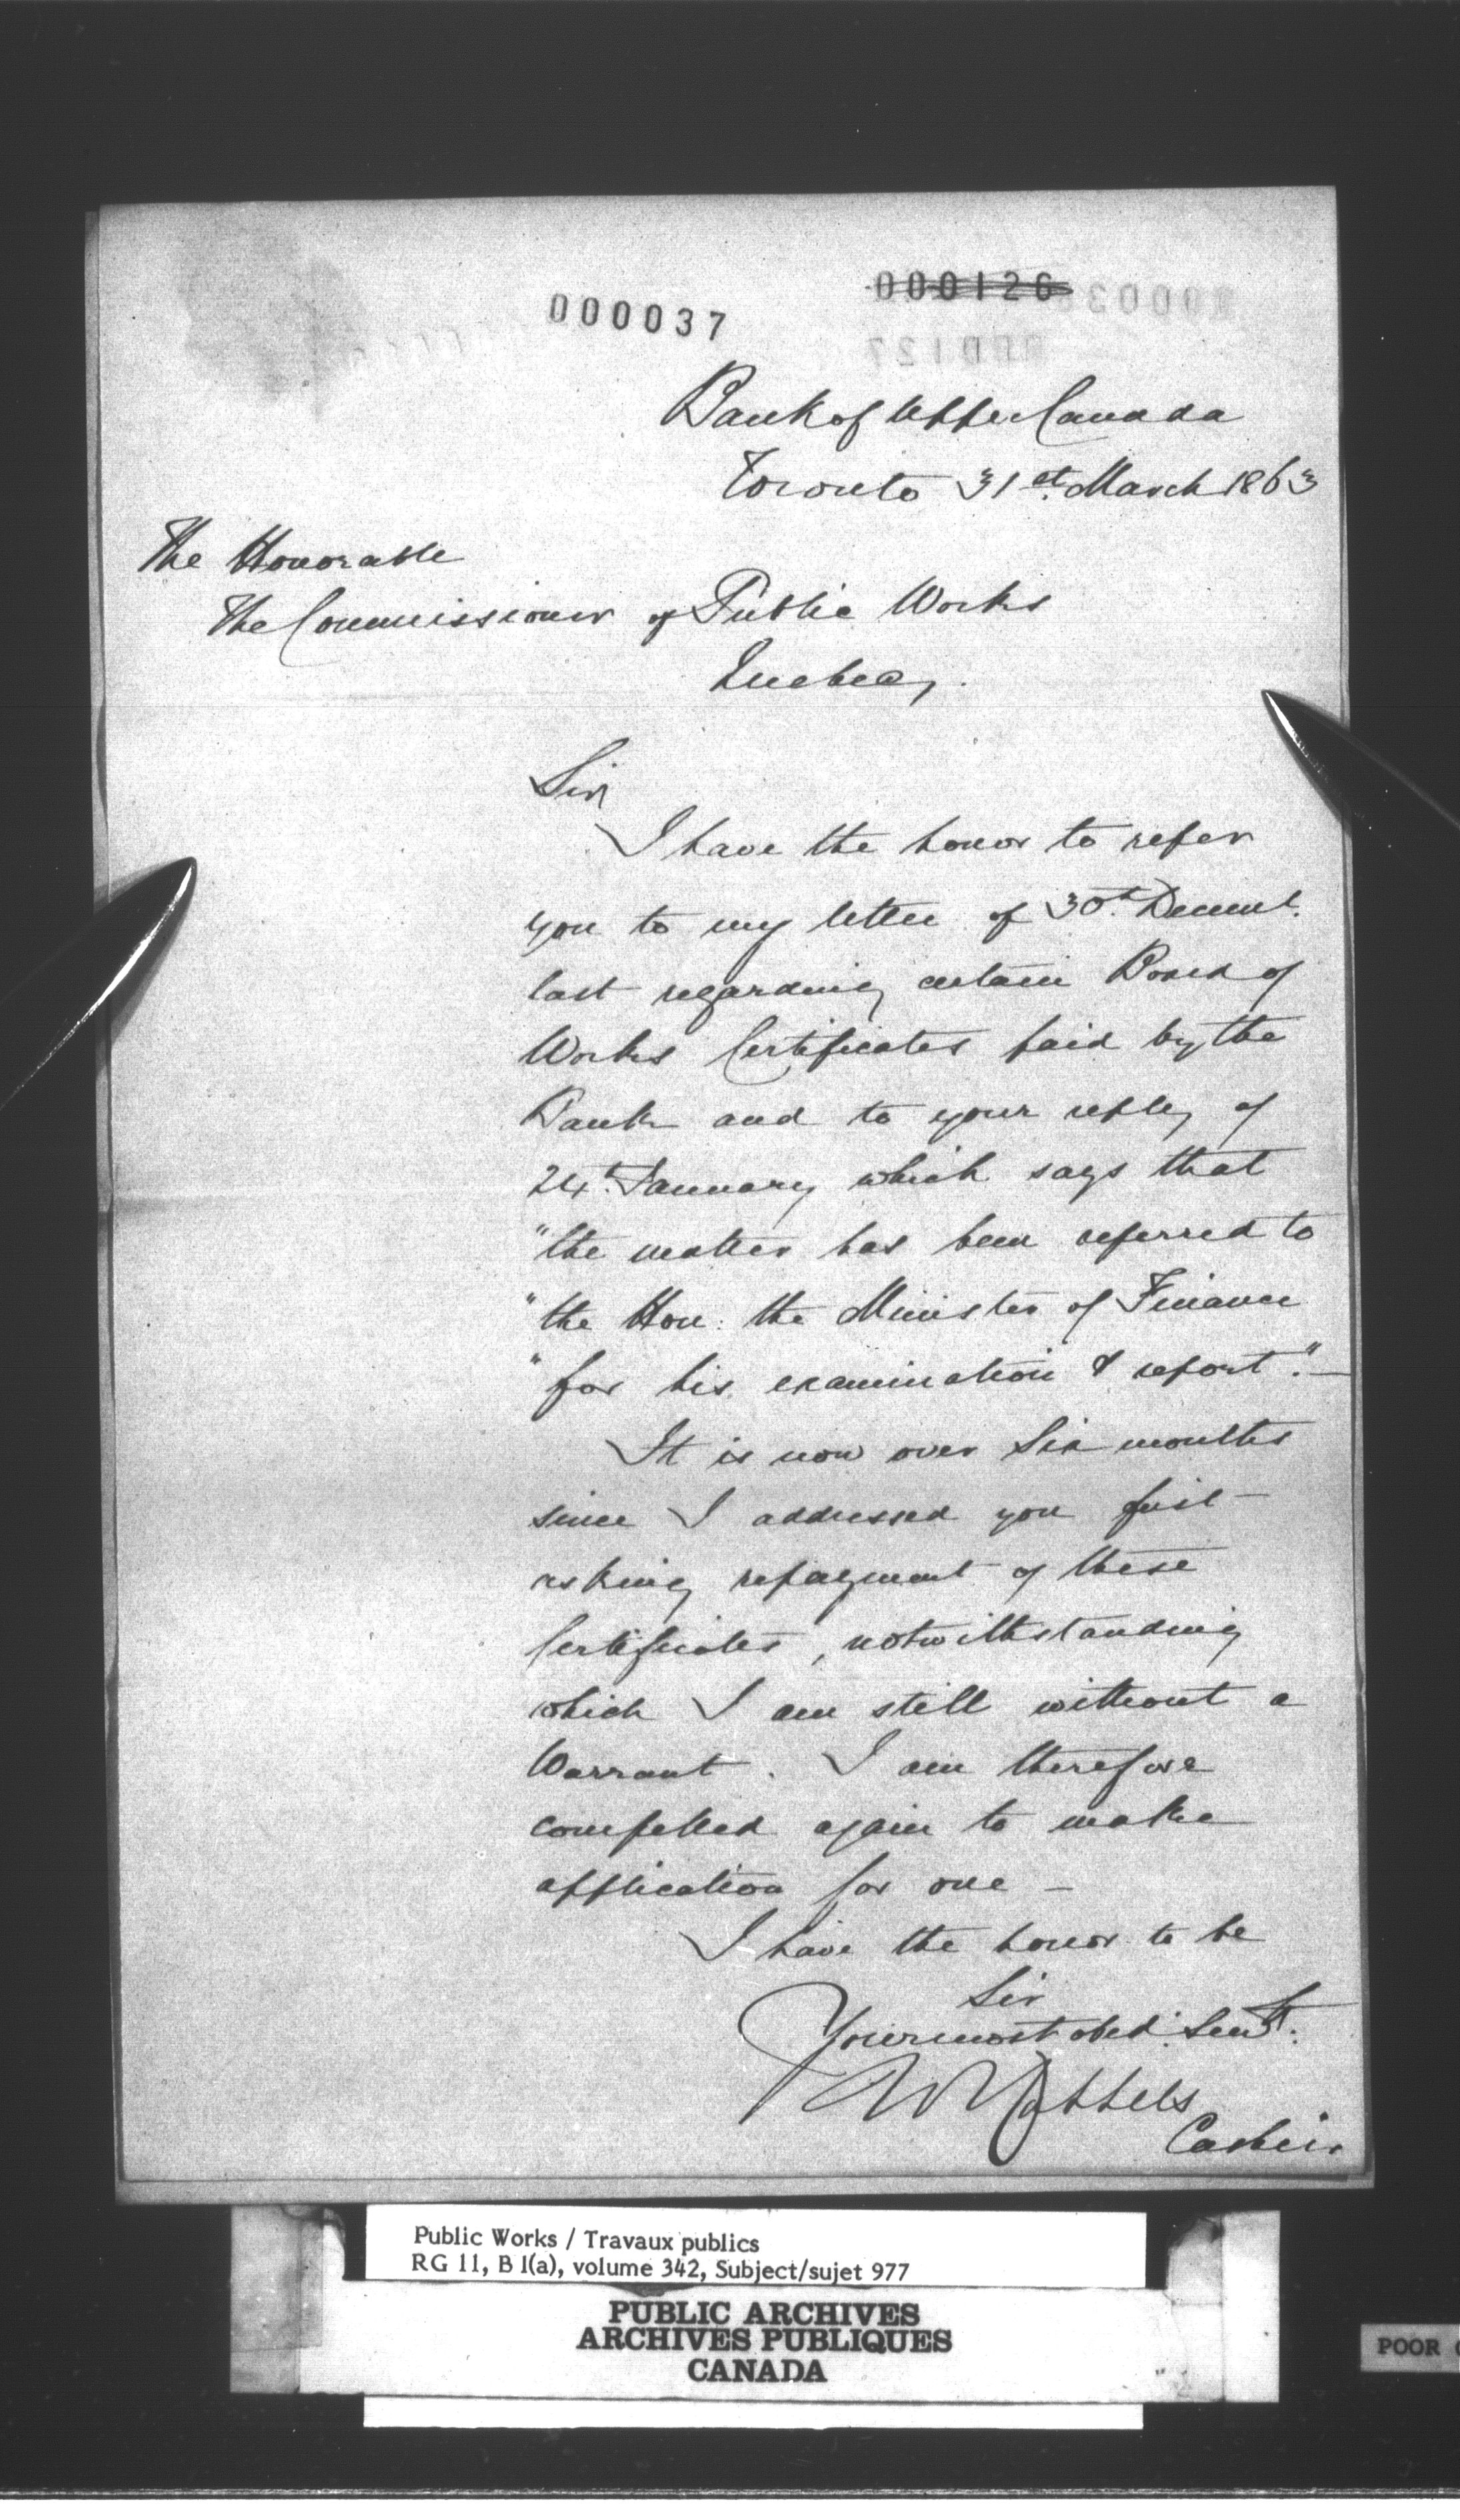 000037
000126
Bank of Upper Canada
Toronto 31st. March 1863
The Honorable
The Commissioner of Public Works
Quebec,
Sir,
I have the honor to refer
you to my letter of 30th Decemb.
last regarding certain Board of
Works Certificates paid by the
Bank and to your reply of
24th January which says that
"the matter has been referred to
"the Hon: the Minister of Finance
"for his examination & report." —
It is now over Six months
since I addressed you first
asking repayment of these
Certificates, notwithstanding
which I am still without a
Warrant. I am therefore
compelled again to make
application for one —
I have the honor to be
Sir
Your most obed. Servt.
Cashier
Public Works / Travaux publics
RG 11, B 1(a), volume 342, Subject/sujet 977
PUBLIC ARCHIVES
ARCHIVES PUBLIQUES
CANADA
POOR